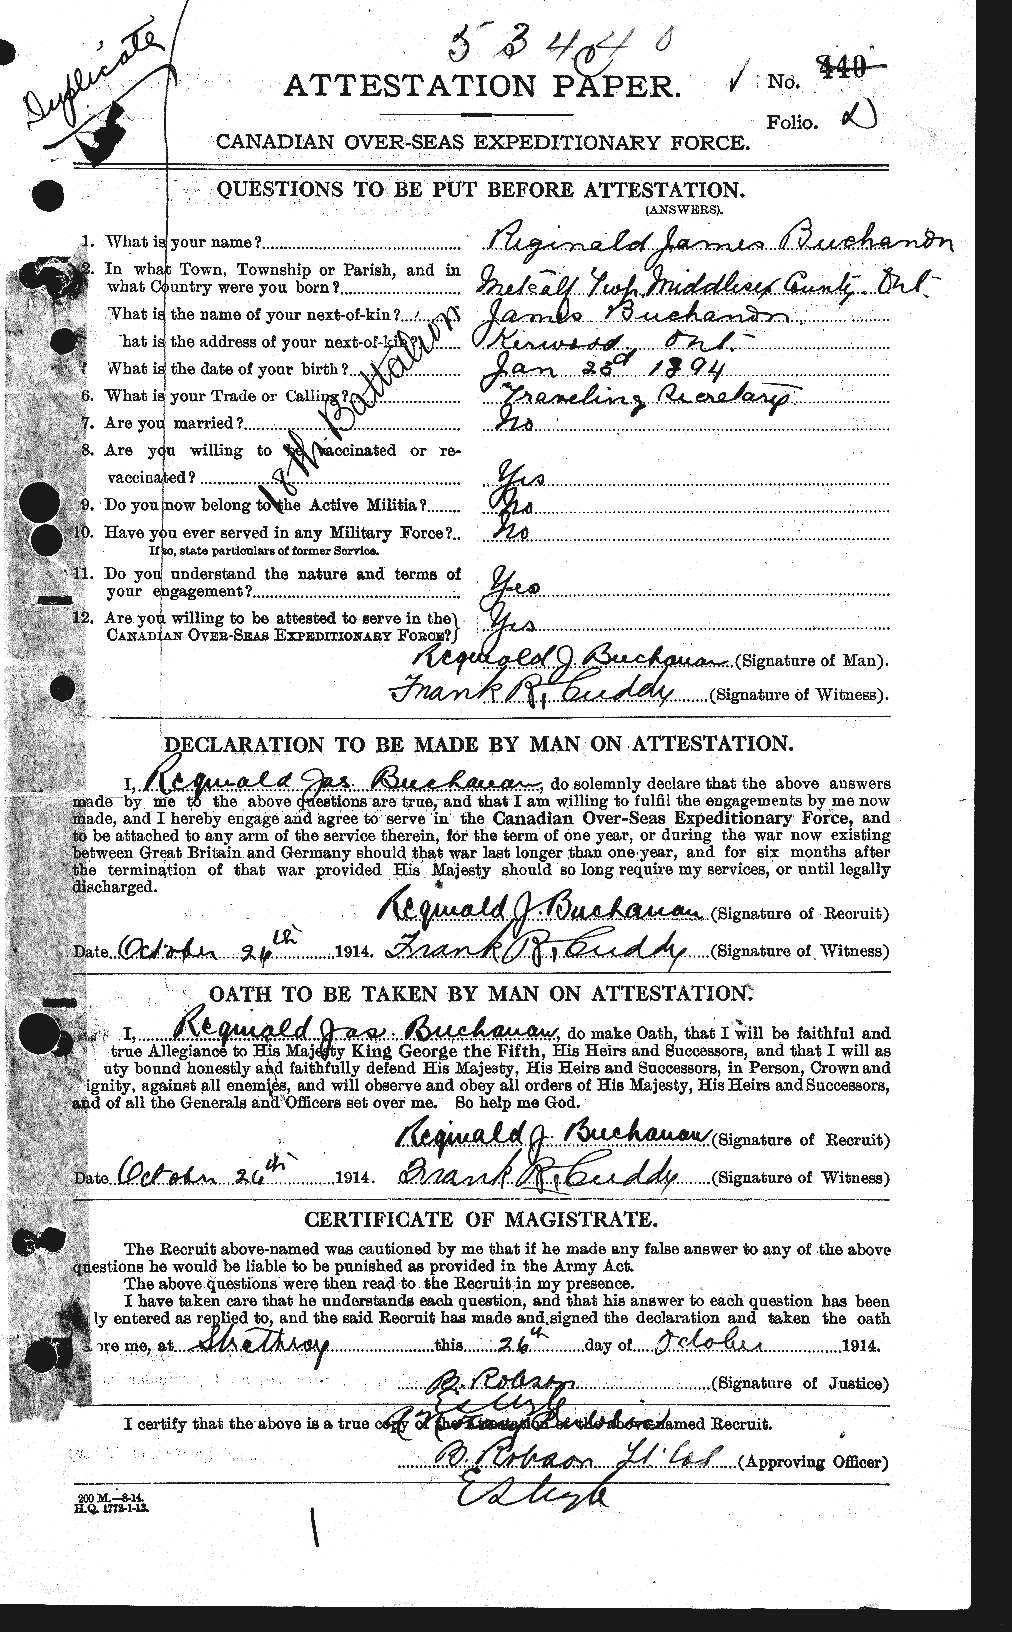 Duplicate
53440
ATTESTATION PAPER.
No. 440
Folio. D
CANADIAN OVER-SEAS EXPEDITIONARY FORCE.
QUESTIONS TO BE PUT BEFORE ATTESTATION.
(ANSWERS).
1. What is your name? Reginald James Buchanan
2. In what Town, Township or Parish, and in
what Country were you born? Metcalf Twp. Middlesex County. Ont.
What is the name of your next-of-kin? James Buchanan
hat is the address of your next-of-kin? Kerwood, Ont.
What is the date of your birth? Jan 23d 1894
6. What is your Trade or Calling? Traveling Secretary
7. Are you married? No
8. Are you willing to be vaccinated or re-
vaccinated? Yes
9. Do you now belong to the Active Militia? No
10. Have you ever served in any Military Force? No
If so, state particulars of former Service.
11. Do you understand the nature and terms of
your engagement? Yes
12. Are you willing to be attested to serve in the
CANADIAN OVER-SEAS EXPEDITIONARY FORCE? Yes
18th Battalion
Reginald J. Buchanan (Signature of Man).
Frank R. Cuddy (Signature of Witness).
DECLARATION TO BE MADE BY MAN ON ATTESTATION.
I, Reginald Jas Buchanan, do solemnly declare that the above answers
made by me to the above questions are true, and that I am willing to fulfil the engagements by me now
made, and I hereby engage and agree to serve in the Canadian Over-Seas Expeditionary Force, and
to be attached to any arm of the service therein, for the term of one year, or during the war now existing
between Great Britain and Germany should that war last longer than one year, and for six months after
the termination of that war provided His Majesty should so long require my services, or until legally
discharged.
Reginald J. Buchanan (Signature of Recruit)
Date October 26th 1914. Frank R. Cuddy (Signature of Witness)
OATH TO BE TAKEN BY MAN ON ATTESTATION.
I, Reginald Jas. Buchanan, do make Oath, that I will be faithful and
true Allegiance to His Majesty King George the Fifth, His Heirs and Successors, and that I will as
uty bound honestly and faithfully defend His Majesty, His Heirs and Successors, in Person, Crown and
ignity, against all enemies, and will observe and obey all orders of His Majesty, His Heirs and Successors,
and of all the Generals and Officers set over me. So help me God.
Reginald J. Buchanan (Signature of Recruit)
Date October 26th 1914. Frank R. Cuddy (Signature of Witness)
CERTIFICATE OF MAGISTRATE.
The Recruit above-named was cautioned by me that if he made any false answer to any of the above
questions he would be liable to be punished as provided in the Army Act.
The above questions were then read to the Recruit in my presence.
I have taken care that he understands each question, and that his answer to each question has been
ly entered as replied to, and the said Recruit has made and signed the declaration and taken the oath
ore me, at Strathroy this 26th day of October 1914.
B. Robson (Signature of Justice)
I certify that the above is a true copy of the Attestation of the above-named Recruit.
B. Robson Lt Col (Approving Officer)
200 M.—8-14.
H.Q. 1772-1-13.